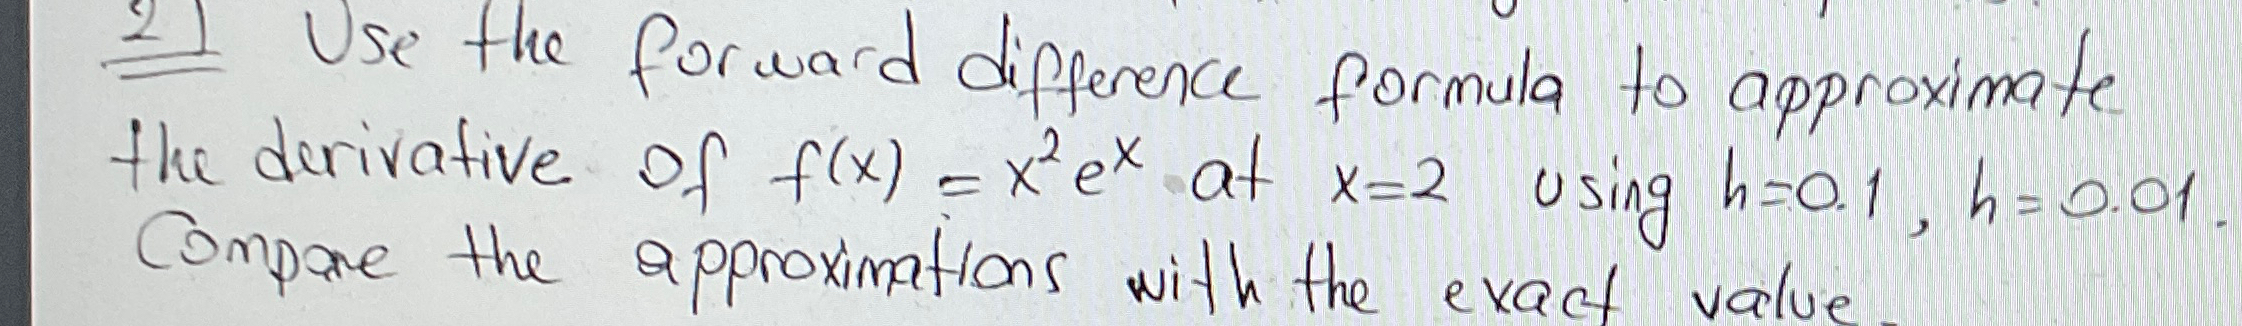 2] Use the forward difference formula to approximate
the derivative of f(x) = x²eˣ at x=2 using h=0.1, h=0.01.
Compare the approximations with the exact value.